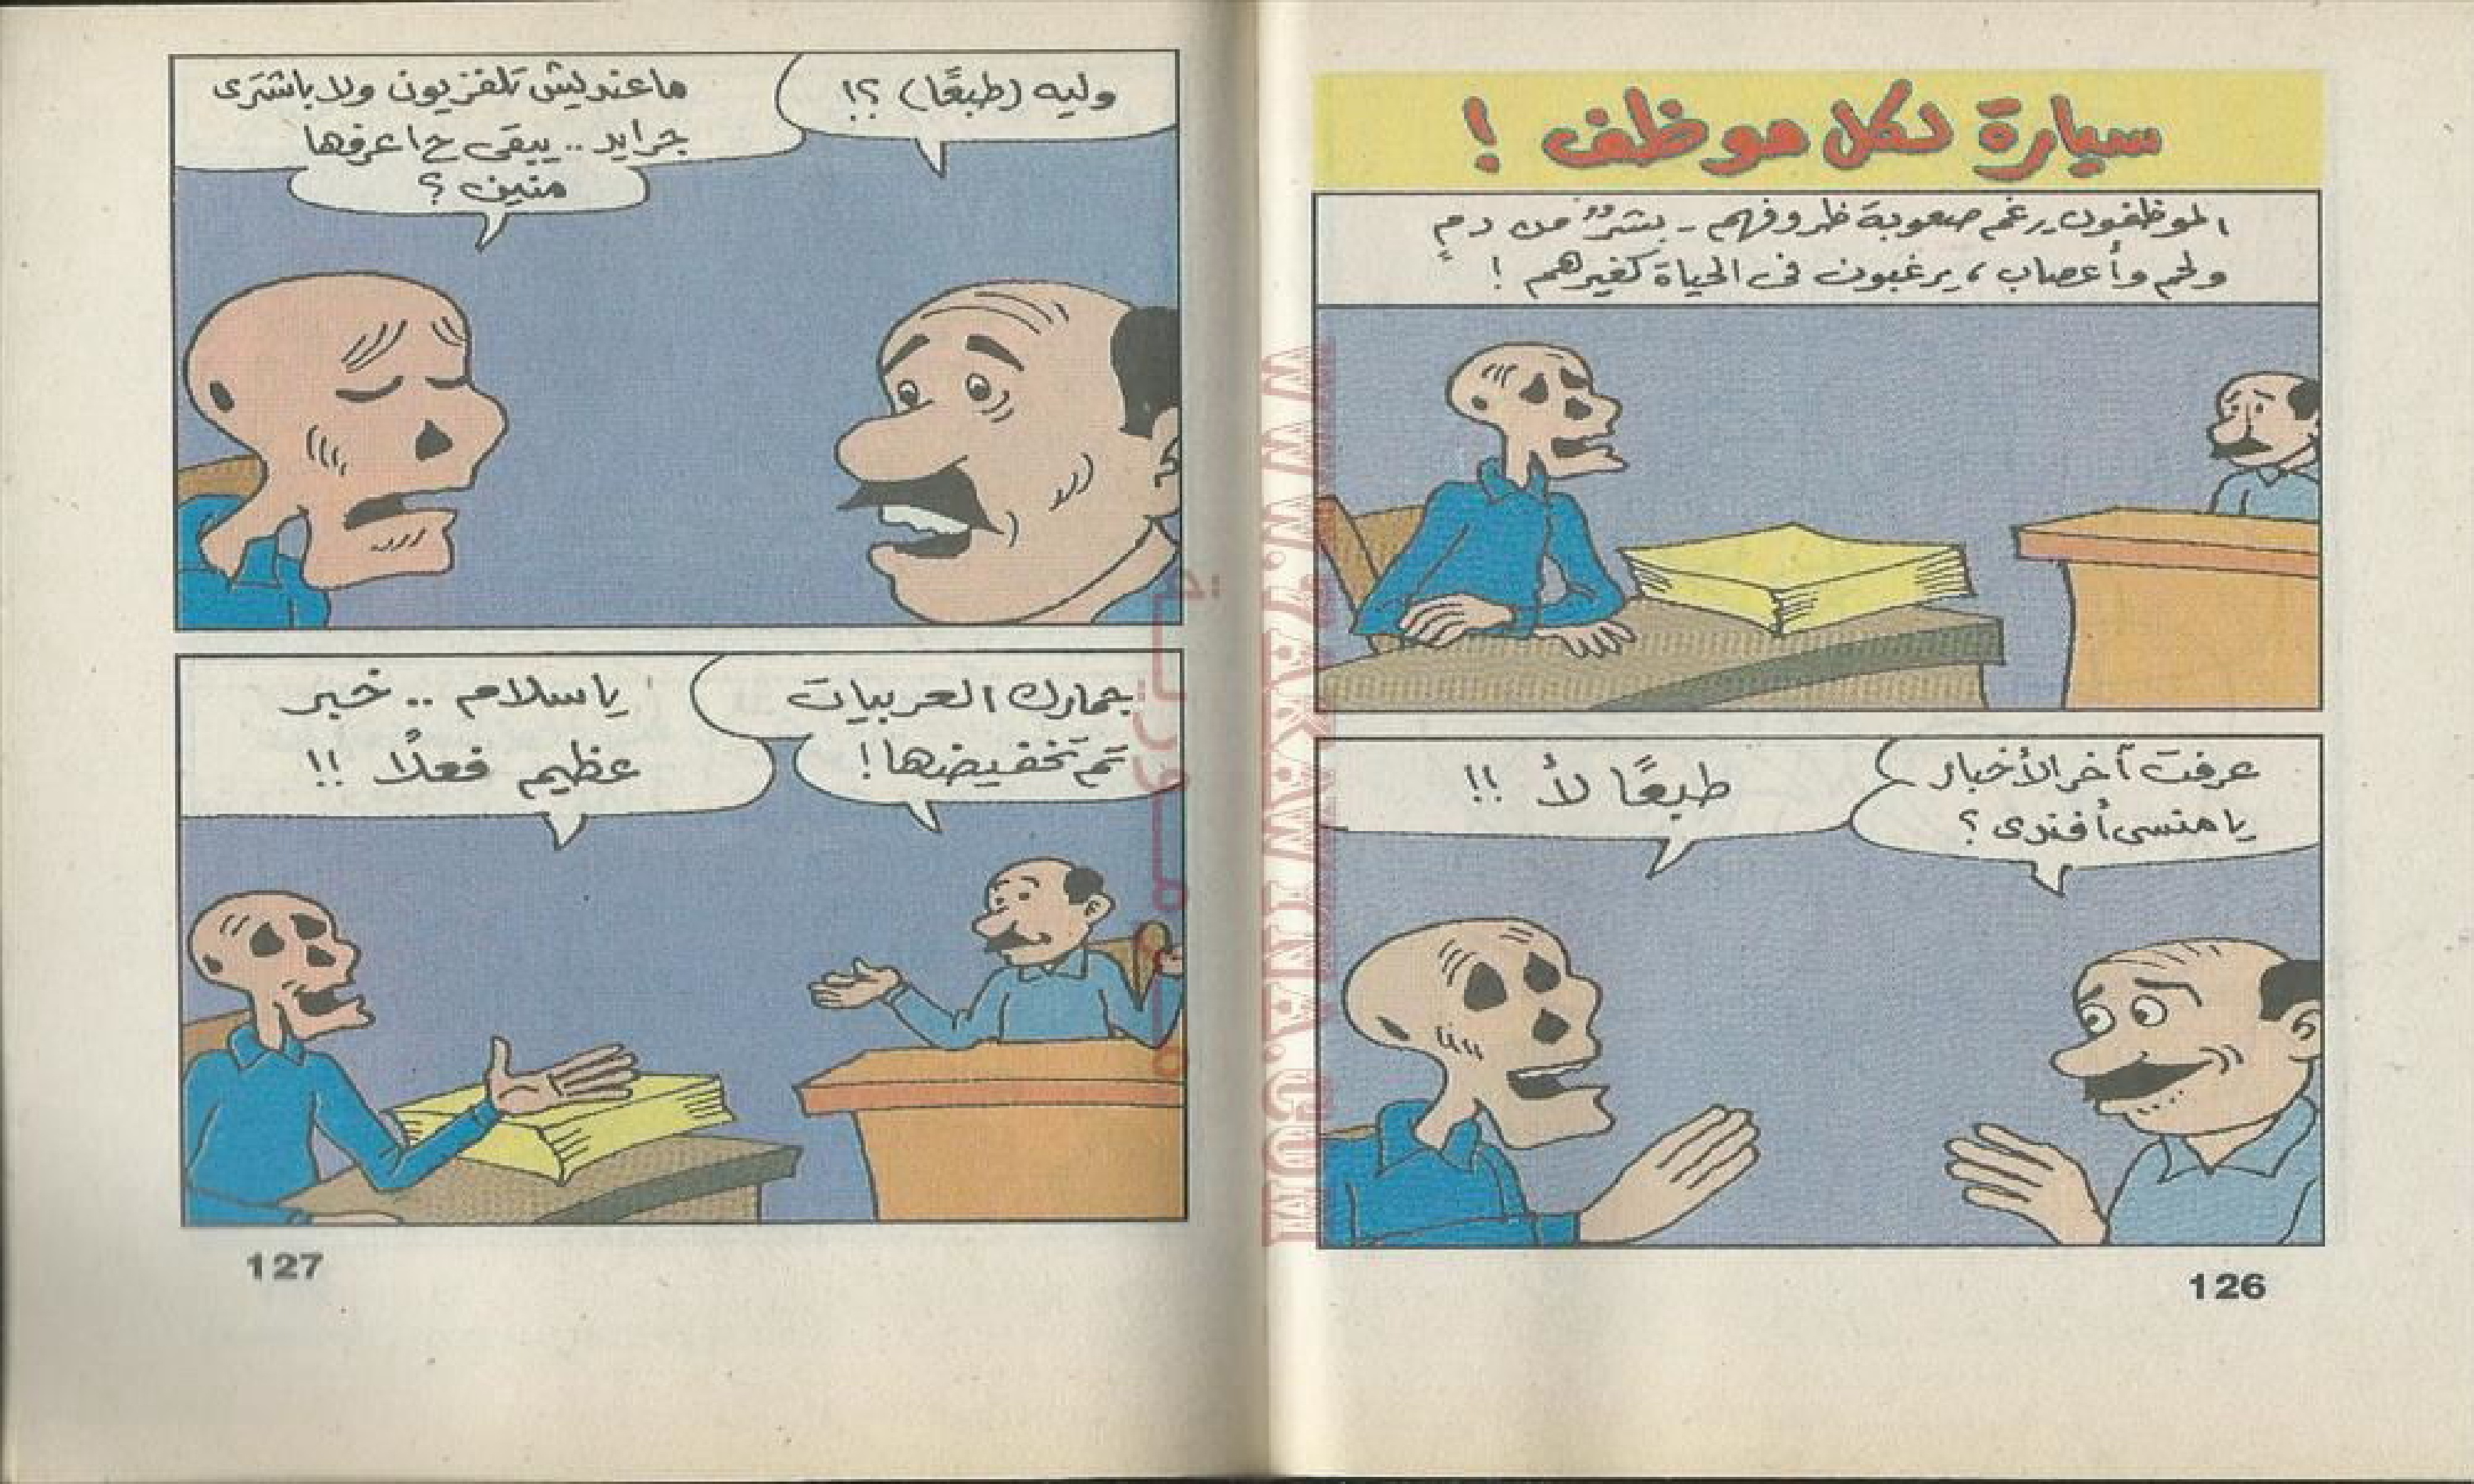 سيارة لكل موظف !
الموظفون - رغم صعوبة ظروفهم - بشرٌ من دمٍ
ولحم وأعصاب ، يرغبون فى الحياة كغيرهم !
عرفت آخر الأخبار
يا منسى أفندى ؟
طبعًا لأ !!
126
وليه (طبعًا) ؟!
ماعنديش تلفزيون ولا باشترى
جرايد .. يبقى ح اعرفها
منين ؟
جمارك العربيات
تم تخفيضها !
ياسلام .. خبر
عظيم فعلاً !!
127